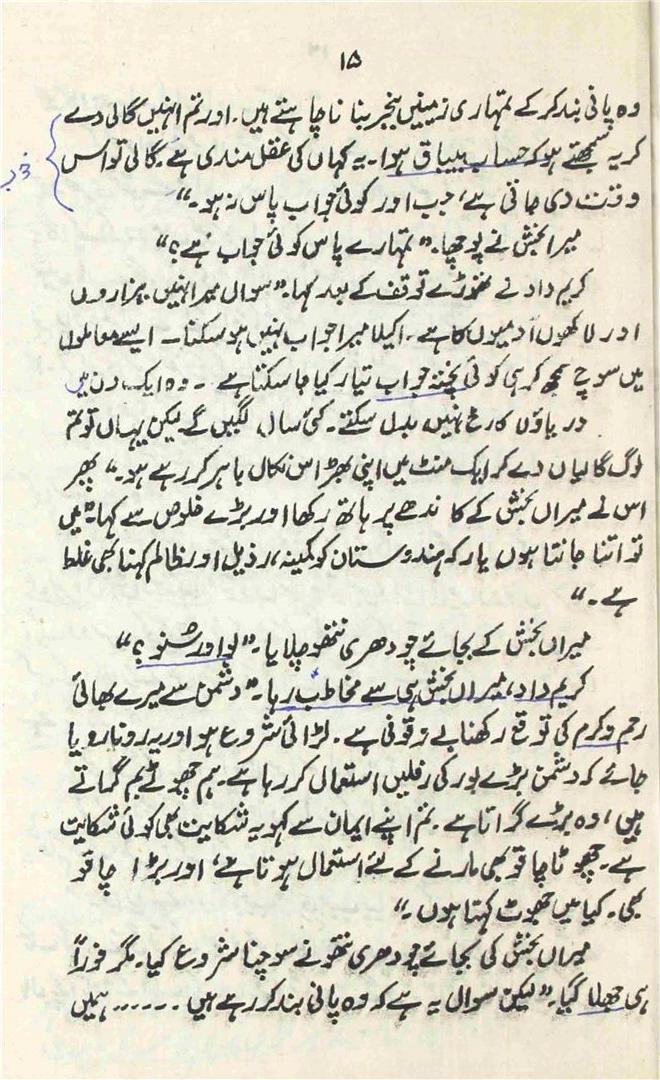 ۱۵
وہ پانی بند کر کے تمہاری زمینیں بنجر بنا نا چاہتے ہیں۔ اور تم انہیں گالی دے
کر یہ سمجھتے ہو کہ حساب بیباق ہوا۔ یہ کہاں کی عقل مندی ہے۔ گالی تو اس
وقت دی جاتی ہے، جب اور کوئی جواب پاس نہ ہو۔“
میرا بخش نے پوچھا۔ ”تمہارے پاس کوئی جواب ہے؟“
کریم داد نے تھوڑے توقف کے بعد کہا۔ ”سوال میرا نہیں ہزاروں
اور لاکھوں آدمیوں کا ہے۔ اکیلا میرا جواب نہیں ہو سکتا۔ ایسے معاملوں
میں سوچ سمجھ کر ہی کوئی پختہ جواب تیار کیا جا سکتا ہے ۔ وہ ایک دن میں
دریاؤں کا رخ نہیں بدل سکتے۔ کئی سال لگیں گے لیکن یہاں تو تم
لوگ گالیاں دے کر ایک منٹ میں اپنی بھڑاس نکال باہر کر رہے ہو۔“ پھر
اس نے میراں بخش کے کاندھے پر ہاتھ رکھا اور بڑے خلوص سے کہا۔ ”میں
تو اتنا جانتا ہوں یار کہ ہندوستان کو کمینہ، رذیل اور ظالم کہنا بھی غلط
ہے۔“
میراں بخش کے بجائے چودھری نتھو چلایا۔ ”لو اور سُنو؟“
کریم داد، میراں بخش ہی سے مخاطب رہا۔ ”دشمن سے میرے بھائی
رحم و کرم کی توقع رکھنا بے وقوفی ہے۔ لڑائی شروع ہو اور یہ رونا رویا
جائے کہ دشمن بڑے بور کی رفلیں استعمال کر رہا ہے۔ ہم چھوٹے بم گراتے
ہیں، وہ بڑے گراتا ہے۔ تم اپنے ایمان سے کہو یہ شکایت بھی کوئی شکایت
ہے۔ چھوٹا چاقو بھی مارنے کے لئے استعمال ہوتا ہے، اور بڑا چاقو
بھی۔ کیا میں جھوٹ کہتا ہوں۔“
میراں بخش کی بجائے چودھری نتھو نے سوچنا شروع کیا۔ مگر فوراً
ہی جھلا گیا۔ ”لیکن سوال یہ ہے کہ وہ پانی بند کر رہے ہیں ۔۔۔۔۔۔ ہمیں